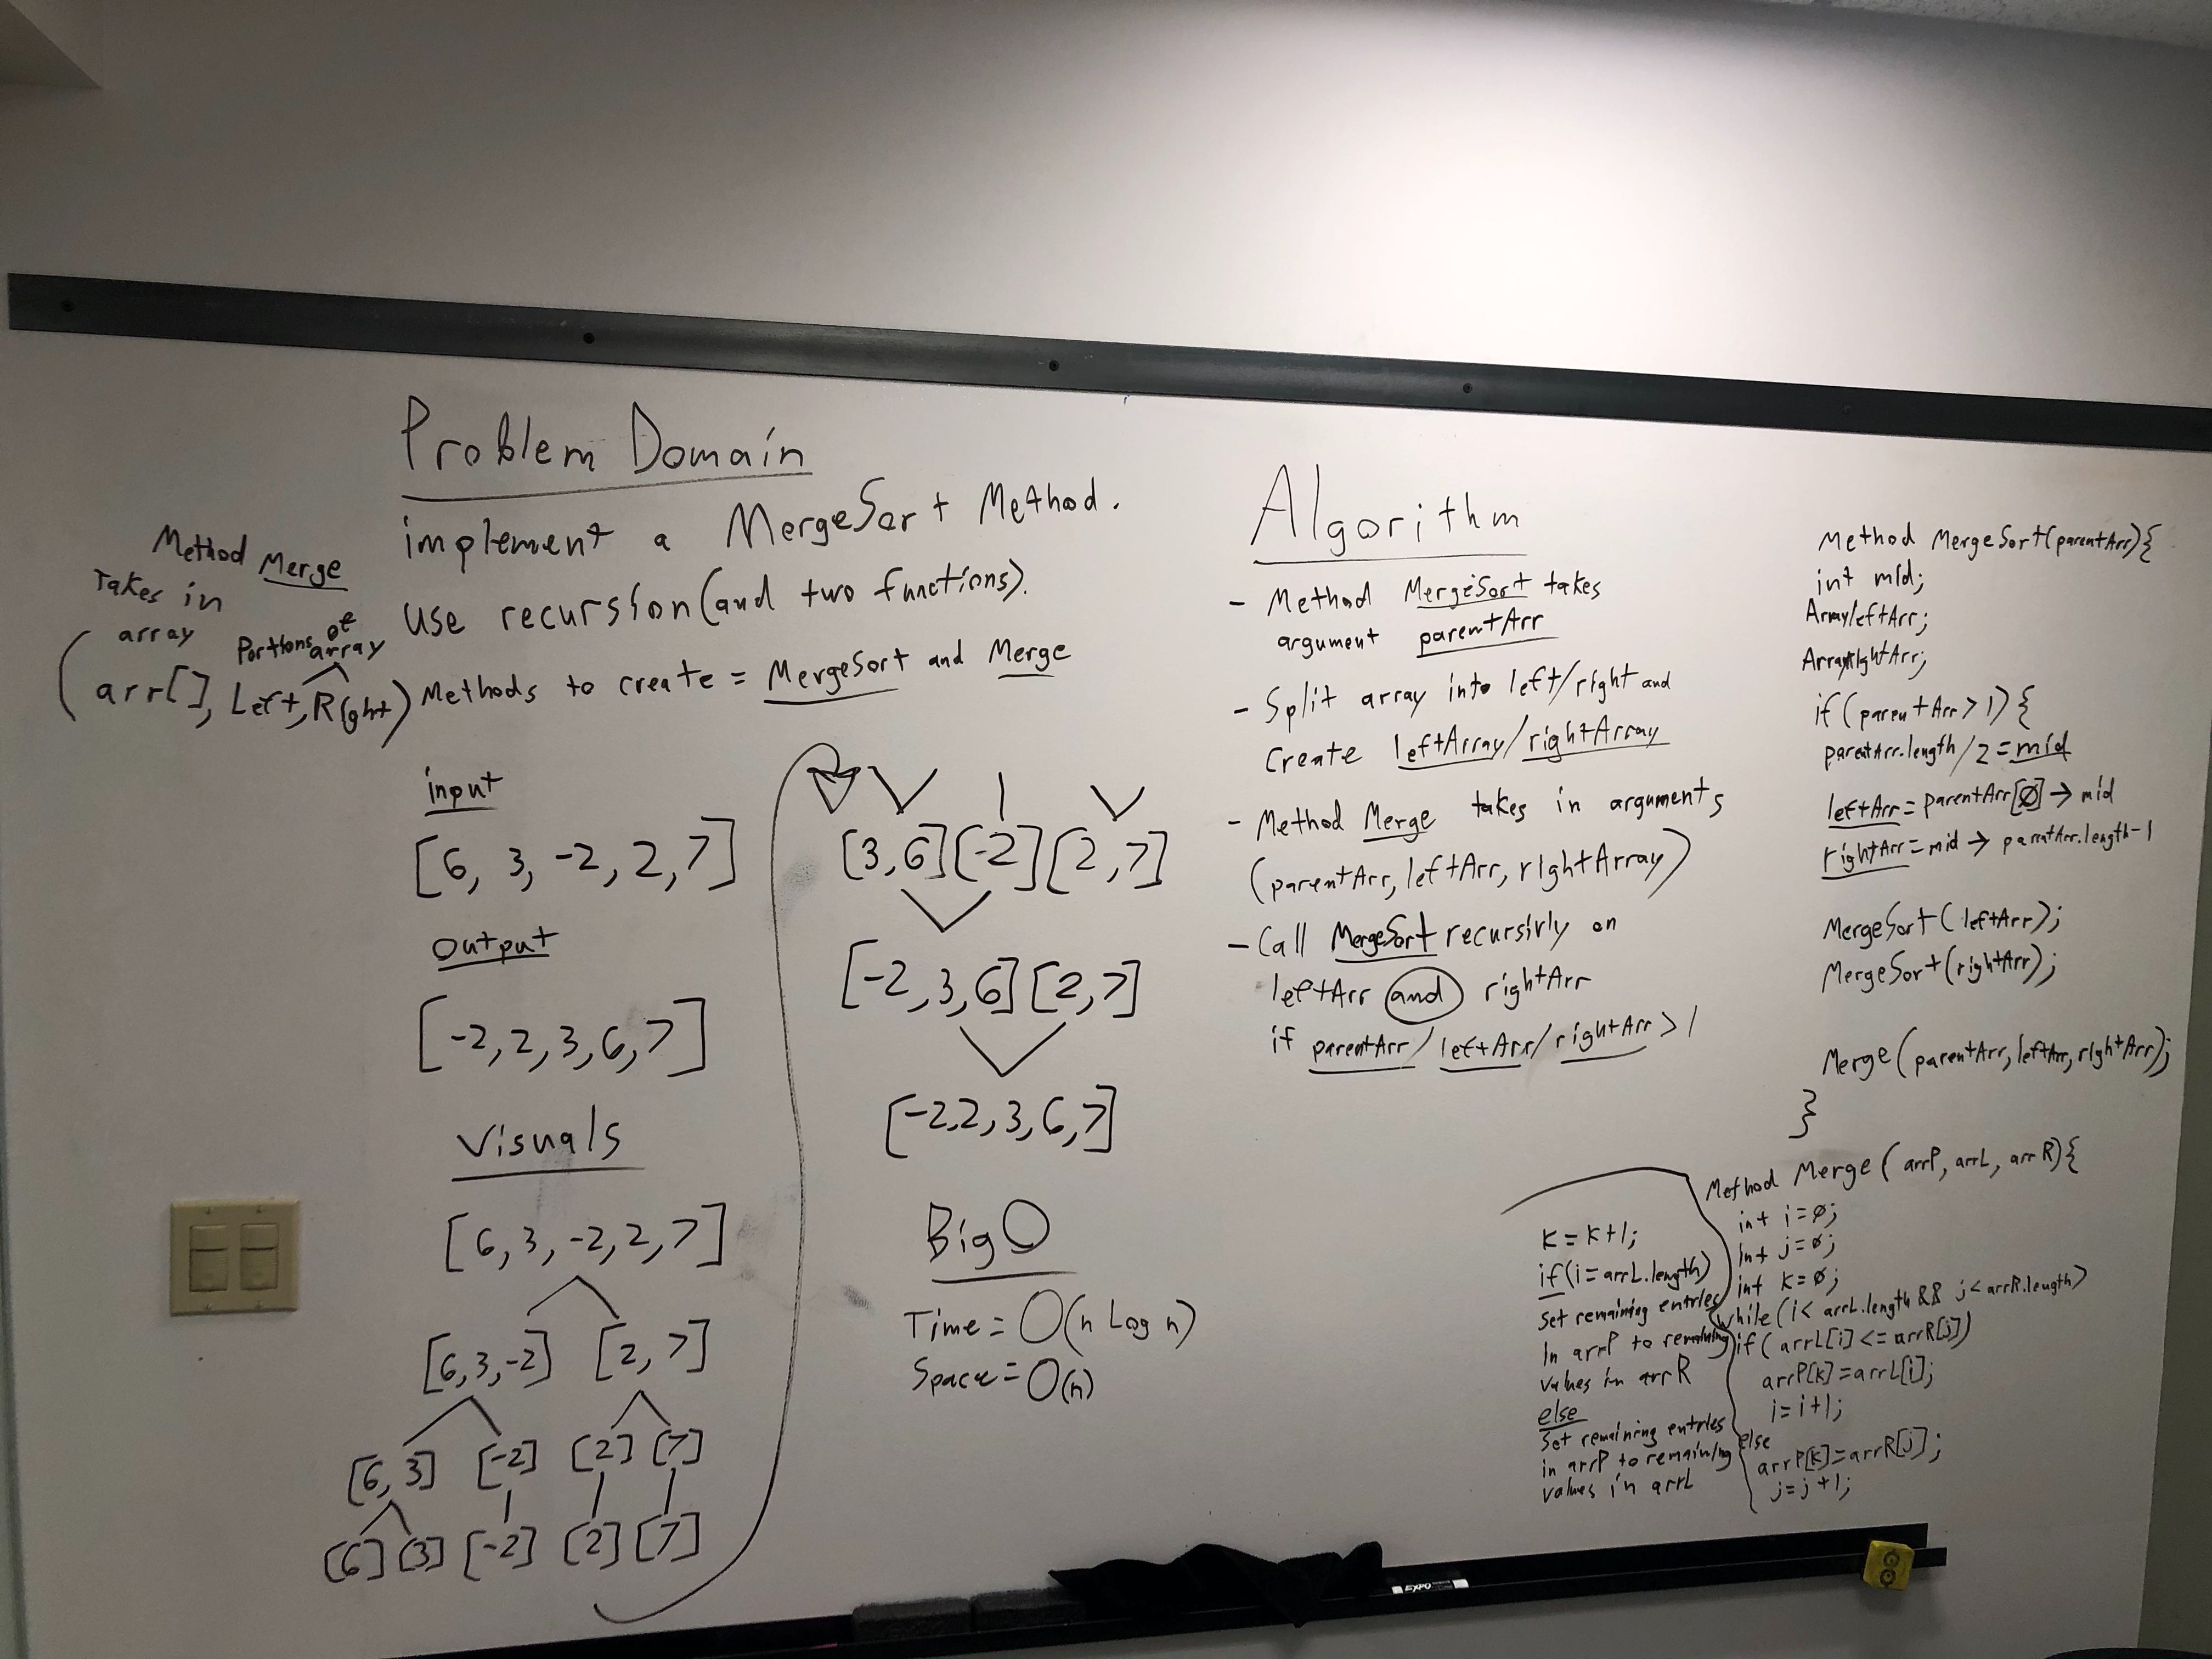 Problem Domain
implement a MergeSort Method.
use recursion (and two functions).
Methods to create = MergeSort and Merge
Method Merge
Takes in
array
Portions of
array
(arr[], Left, Right)
input
[6, 3, -2, 2, 7]
Output
[-2, 2, 3, 6, 7]
Visuals
[6, 3, -2, 2, 7]
[6, 3, -2] [2, 7]
[6, 3] [-2] [2] [7]
[6] [3] [-2] [2] [7]
[3, 6] [-2] [2, 7]
[-2, 3, 6] [2, 7]
[-2, 2, 3, 6, 7]
Big O
Time = O(n Log n)
Space = O(n)
Algorithm
- Method MergeSort takes
argument parentArr
- Split array into left/right and
Create leftArray/rightArray
- Method Merge takes in arguments
(parentArr, leftArr, rightArray)
- Call MergeSort recursivly on
leftArr and rightArr
if parentArr/leftArr/rightArr > 1
Method MergeSort(parentArr){
int mid;
Array leftArr;
Array rightArr;
if (parentArr > 1) {
parentArr.length / 2 = mid
leftArr = parentArr[0] → mid
rightArr = mid → parentArr.length - 1
MergeSort(leftArr);
MergeSort(rightArr);
Merge(parentArr, leftArr, rightArr);
}
Method Merge (arrP, arrL, arrR){
int i = 0;
int j = 0;
int k = 0;
while (i < arrL.length && j < arrR.length)
if (arrL[i] <= arrR[j])
arrP[k] = arrL[i];
i = i + 1;
else
arrP[k] = arrR[j];
j = j + 1;
k = k + 1;
if (i = arrL.length)
Set remaining entries
in arrP to remaining
values in arrR
else
Set remaining entries
in arrP to remaining
values in arrL
EXPO